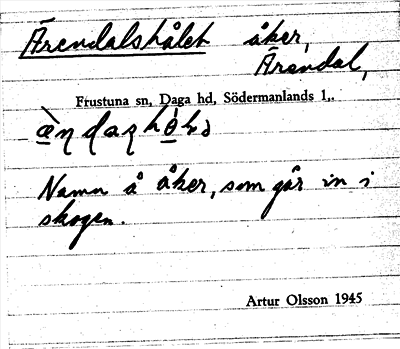 Ärendalshålet åker,
Ärendal,
Frustuna sn, Daga hd, Södermanlands l,.
Namn å åker, som går in i
skogen.
Artur Olsson 1945